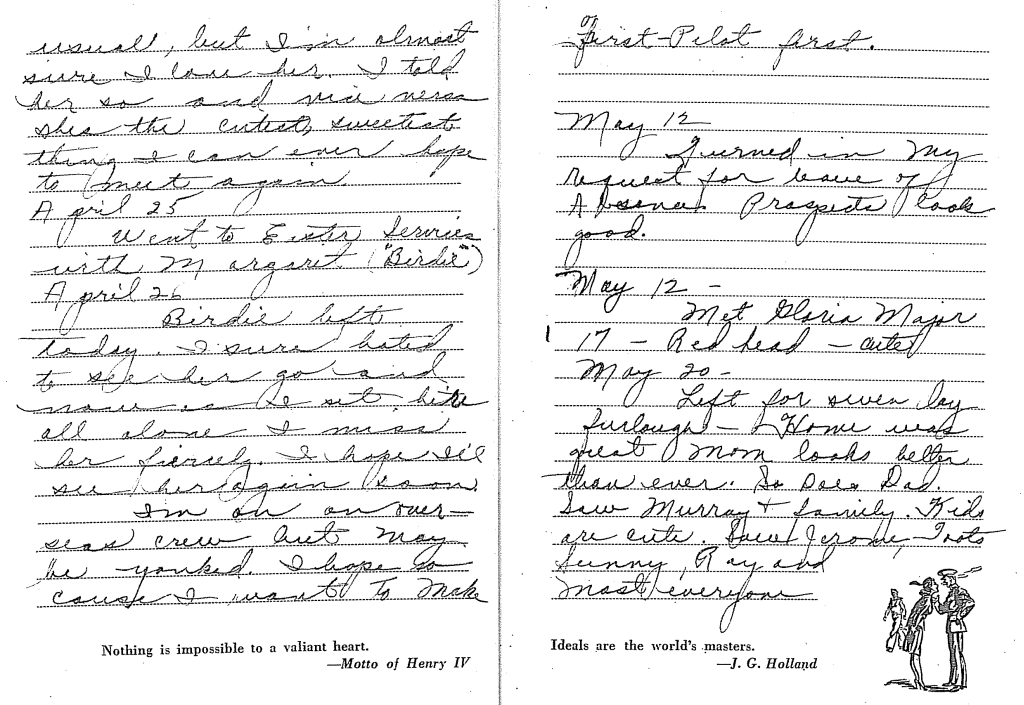 usual, but I'm almost
sure I love her. I told
her so and vice versa
shes the cutest, sweetest
thing I can ever hope
to meet again.
April 25
Went to Easter Services
with Margaret. ("Birdie")
April 26
Birdie left
today. I sure hated
to see her go and
now as I sit here
all alone I miss
her fiercely. I hope I'll
see her again soon.
I'm on an over-
seas crew but may
be yanked. I hope so
cause I want to make
Nothing is impossible to a valiant heart.
—Motto of Henry IV
of
First-Pilot first.
May 12
Turned in my
request for leave of
Absence. Prospects look
good.
May 12 -
Met Gloria Major
17 - Red head - cute
May 20 -
Left for seven day
furlough - Home was
great Mom looks better
than ever. So does Dad.
Saw Murray & family. Kids
are cute. Saw Jerome, Toots
Sunny, Ray and
most everyone
Ideals are the world's masters.
—J. G. Holland